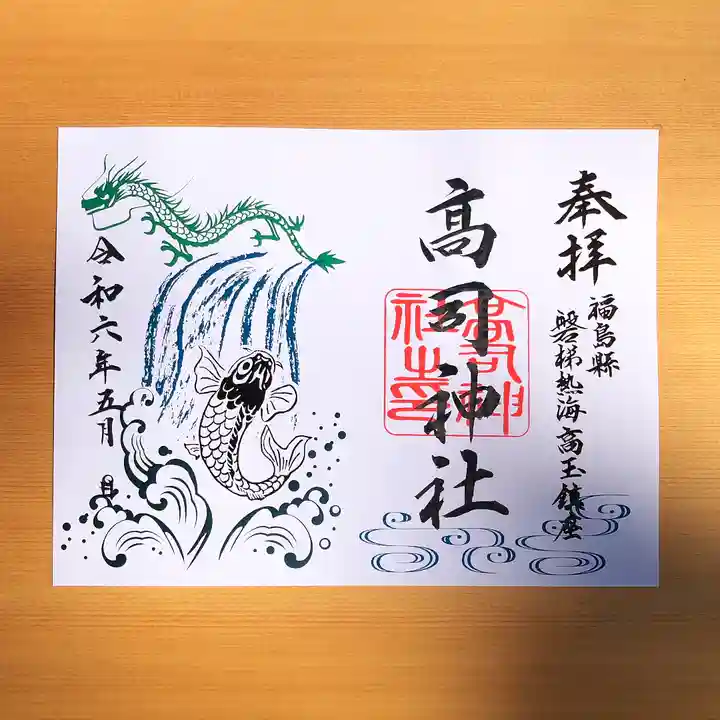 奉拝
福島縣
磐梯熱海高玉鎮座
高司神社
高司神
社之印
令和六年五月 日